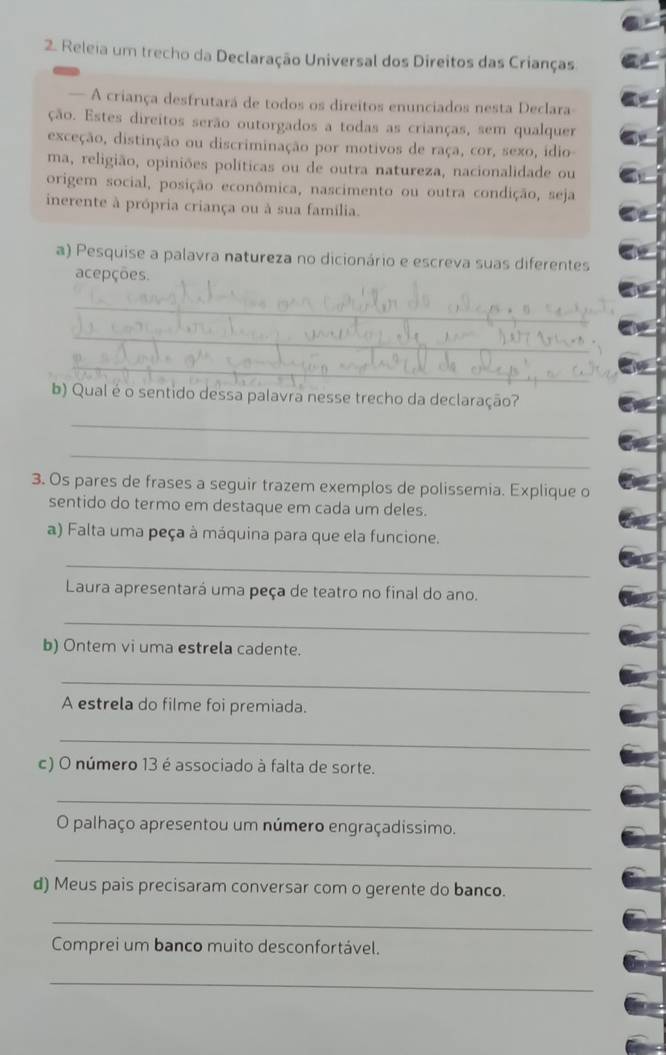 2. Releia um trecho da Declaração Universal dos Direitos das Crianças
— A criança desfrutará de todos os direitos enunciados nesta Declara-
ção. Estes direitos serão outorgados a todas as crianças, sem qualquer
exceção, distinção ou discriminação por motivos de raça, cor, sexo, idio-
ma, religião, opiniões políticas ou de outra natureza, nacionalidade ou
origem social, posição econômica, nascimento ou outra condição, seja
inerente à própria criança ou à sua família.
a) Pesquise a palavra natureza no dicionário e escreva suas diferentes
acepções.
ou caráter de
de um ser
ou condição natural de
b) Qual é o sentido dessa palavra nesse trecho da declaração?
3. Os pares de frases a seguir trazem exemplos de polissemia. Explique o
sentido do termo em destaque em cada um deles.
a) Falta uma peça à máquina para que ela funcione.
Laura apresentará uma peça de teatro no final do ano.
b) Ontem vi uma estrela cadente.
A estrela do filme foi premiada.
c) O número 13 é associado à falta de sorte.
O palhaço apresentou um número engraçadíssimo.
d) Meus pais precisaram conversar com o gerente do banco.
Comprei um banco muito desconfortável.